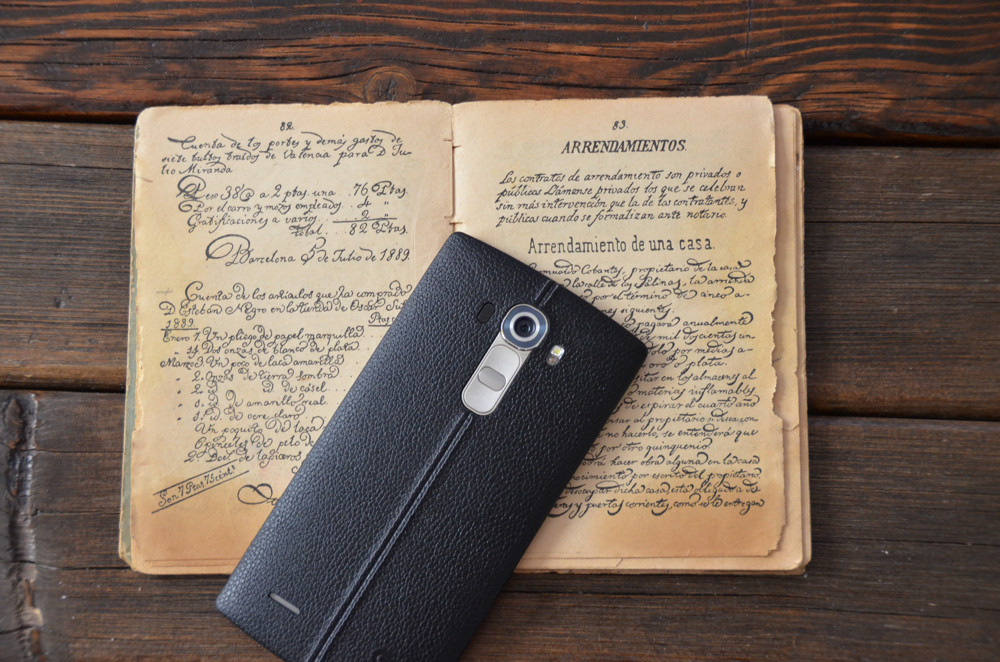 82.
Cuenta de los portes y demás gastos de
siete bultos traidos de Valencia para D. Ju-
lio Miranda
Peso 38@ a 2 ptas. una . 76 Ptas.
Por el carro y mozos empleados . . 4 "
Gratificaciones a varios . . . 2 "
Total . . 82 Ptas.
Barcelona 5 de Julio de 1889.
Cuenta de los articulos que ha comprado
D. Esteban Negro en la tienda de Oscar
1889. Ptas
Enero 1. Un pliego de papel marquilla
" 14 Dos onzas de blanco de plata
Marzo 3. Un poco de laca amarilla
" 2. Onzas de tierra sombra
" 2. id. de cásel
" 5. id. de amarillo real
" 5. id. de ocre claro
Un poquito de laca
Pinceles de pelo de
2 Doc.s de lapiceros
Son 7 Ptas. 75 cént.s
83.
ARRENDAMIENTOS.
Los contratos de arrendamiento son privados o
públicas Llámanse privados los que se celebran
sin más intervención que la de los contratantes, y
públicas cuando se formalizan ante notario.
Arrendamiento de una casa.
Romualdo Cobantes, propietario de la casa
de la calle de las Salinas, la arrienda
por el término de cinco a-
siguientes.
pagará anualmente
de mil doscientas
por medias a-
oro o plata.
en los almacenes al
materias inflamables
de espirar el cuarto año
avisar al propietario si desea con
no hacerlo, se entenderá que
por otro quinquenio
podrá hacer obra alguna en la casa
conocimiento por escrito del propietario.
desocupar dicha casa, está obligado a de
y puertas corrientes, como se le entregan